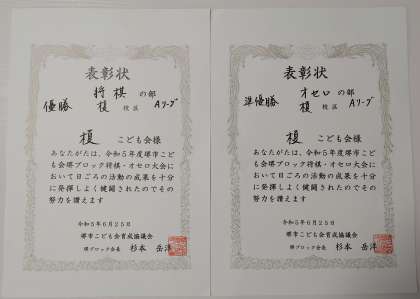 表彰状
将棋 の部
優勝 榎 校区 Aリーグ
榎 こども会様
あなたがたは、令和5年度堺市こど
も会堺ブロック将棋・オセロ大会に
おいて日ごろの活動の成果を十分
に発揮しよく健闘されたのでその
努力を讃えます
令和5年6月25日
堺市こども会育成協議会
堺ブロック会長 杉本 岳洋
表彰状
オセロ の部
準優勝 榎 校区 Aリーグ
榎 こども会様
あなたがたは、令和5年度堺市こど
も会堺ブロック将棋・オセロ大会に
おいて日ごろの活動の成果を十分
に発揮しよく健闘されたのでその
努力を讃えます
令和5年6月25日
堺市こども会育成協議会
堺ブロック会長 杉本 岳洋